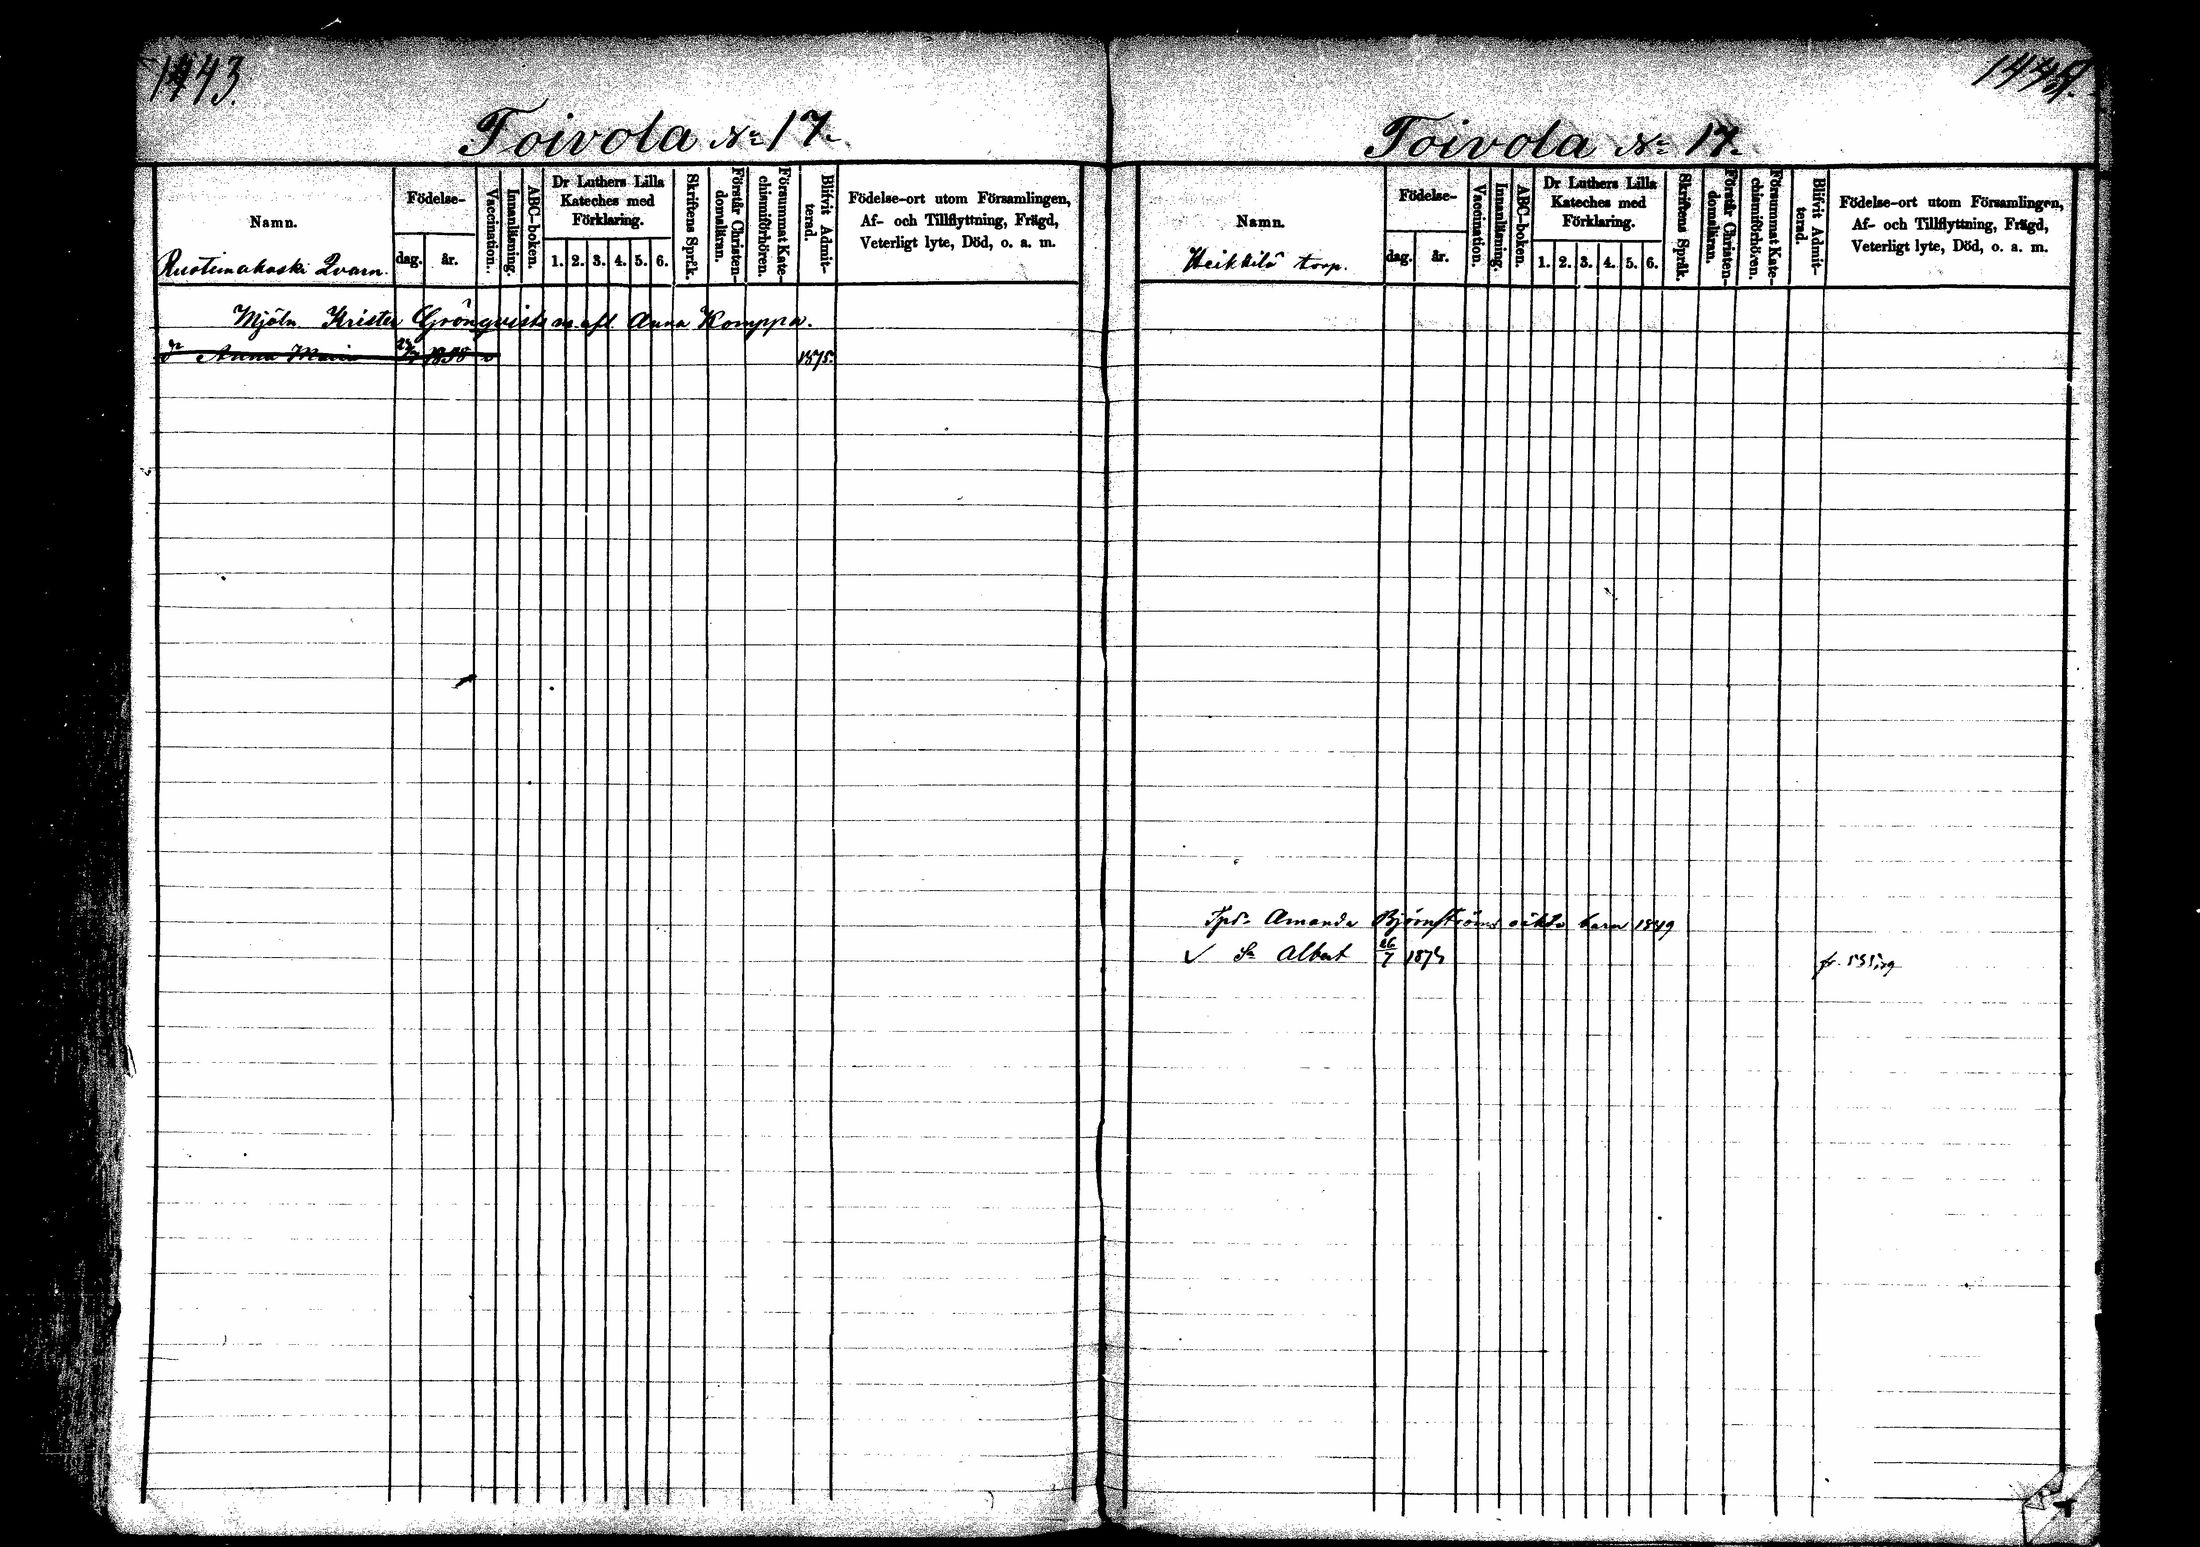 1443.
Toivola No 17.
Namn.
Födelse-
dag.
år.
Vaccination.
Innanläsning.
ABC-boken.
Dr Luthers Lilla
Kateches med
Förklaring.
1. 2. 3. 4. 5. 6.
Skriftens Språk.
Förstår Christen-
domsläran.
Försummat Kate-
chismiförhören.
Blifvit Admit-
terad.
Födelse-ort utom Församlingen,
Af- och Tillflyttning, Frägd,
Veterligt lyte, Död, o. a. m.
Ruotimakoski Qvarn.
Mjöln Krister Grönqvists m. afl. Anna Komppa.
dr Anna Maria 1858 1875.
Toivola No 17.
Namn.
Födelse-
dag.
år.
Vaccination.
Innanläsning.
ABC-boken.
Dr Luthers Lilla
Kateches med
Förklaring.
1. 2. 3. 4. 5. 6.
Skriftens Språk.
Förstår Christen-
domsläran.
Försummat Kate-
chismiförhören.
Blifvit Admit-
terad.
Födelse-ort utom Församlingen,
Af- och Tillflyttning, Frägd,
Veterligt lyte, Död, o. a. m.
Heikkilä torp.
Amanda Björnströms oäkta barn 1849
Sn Albert 26/7